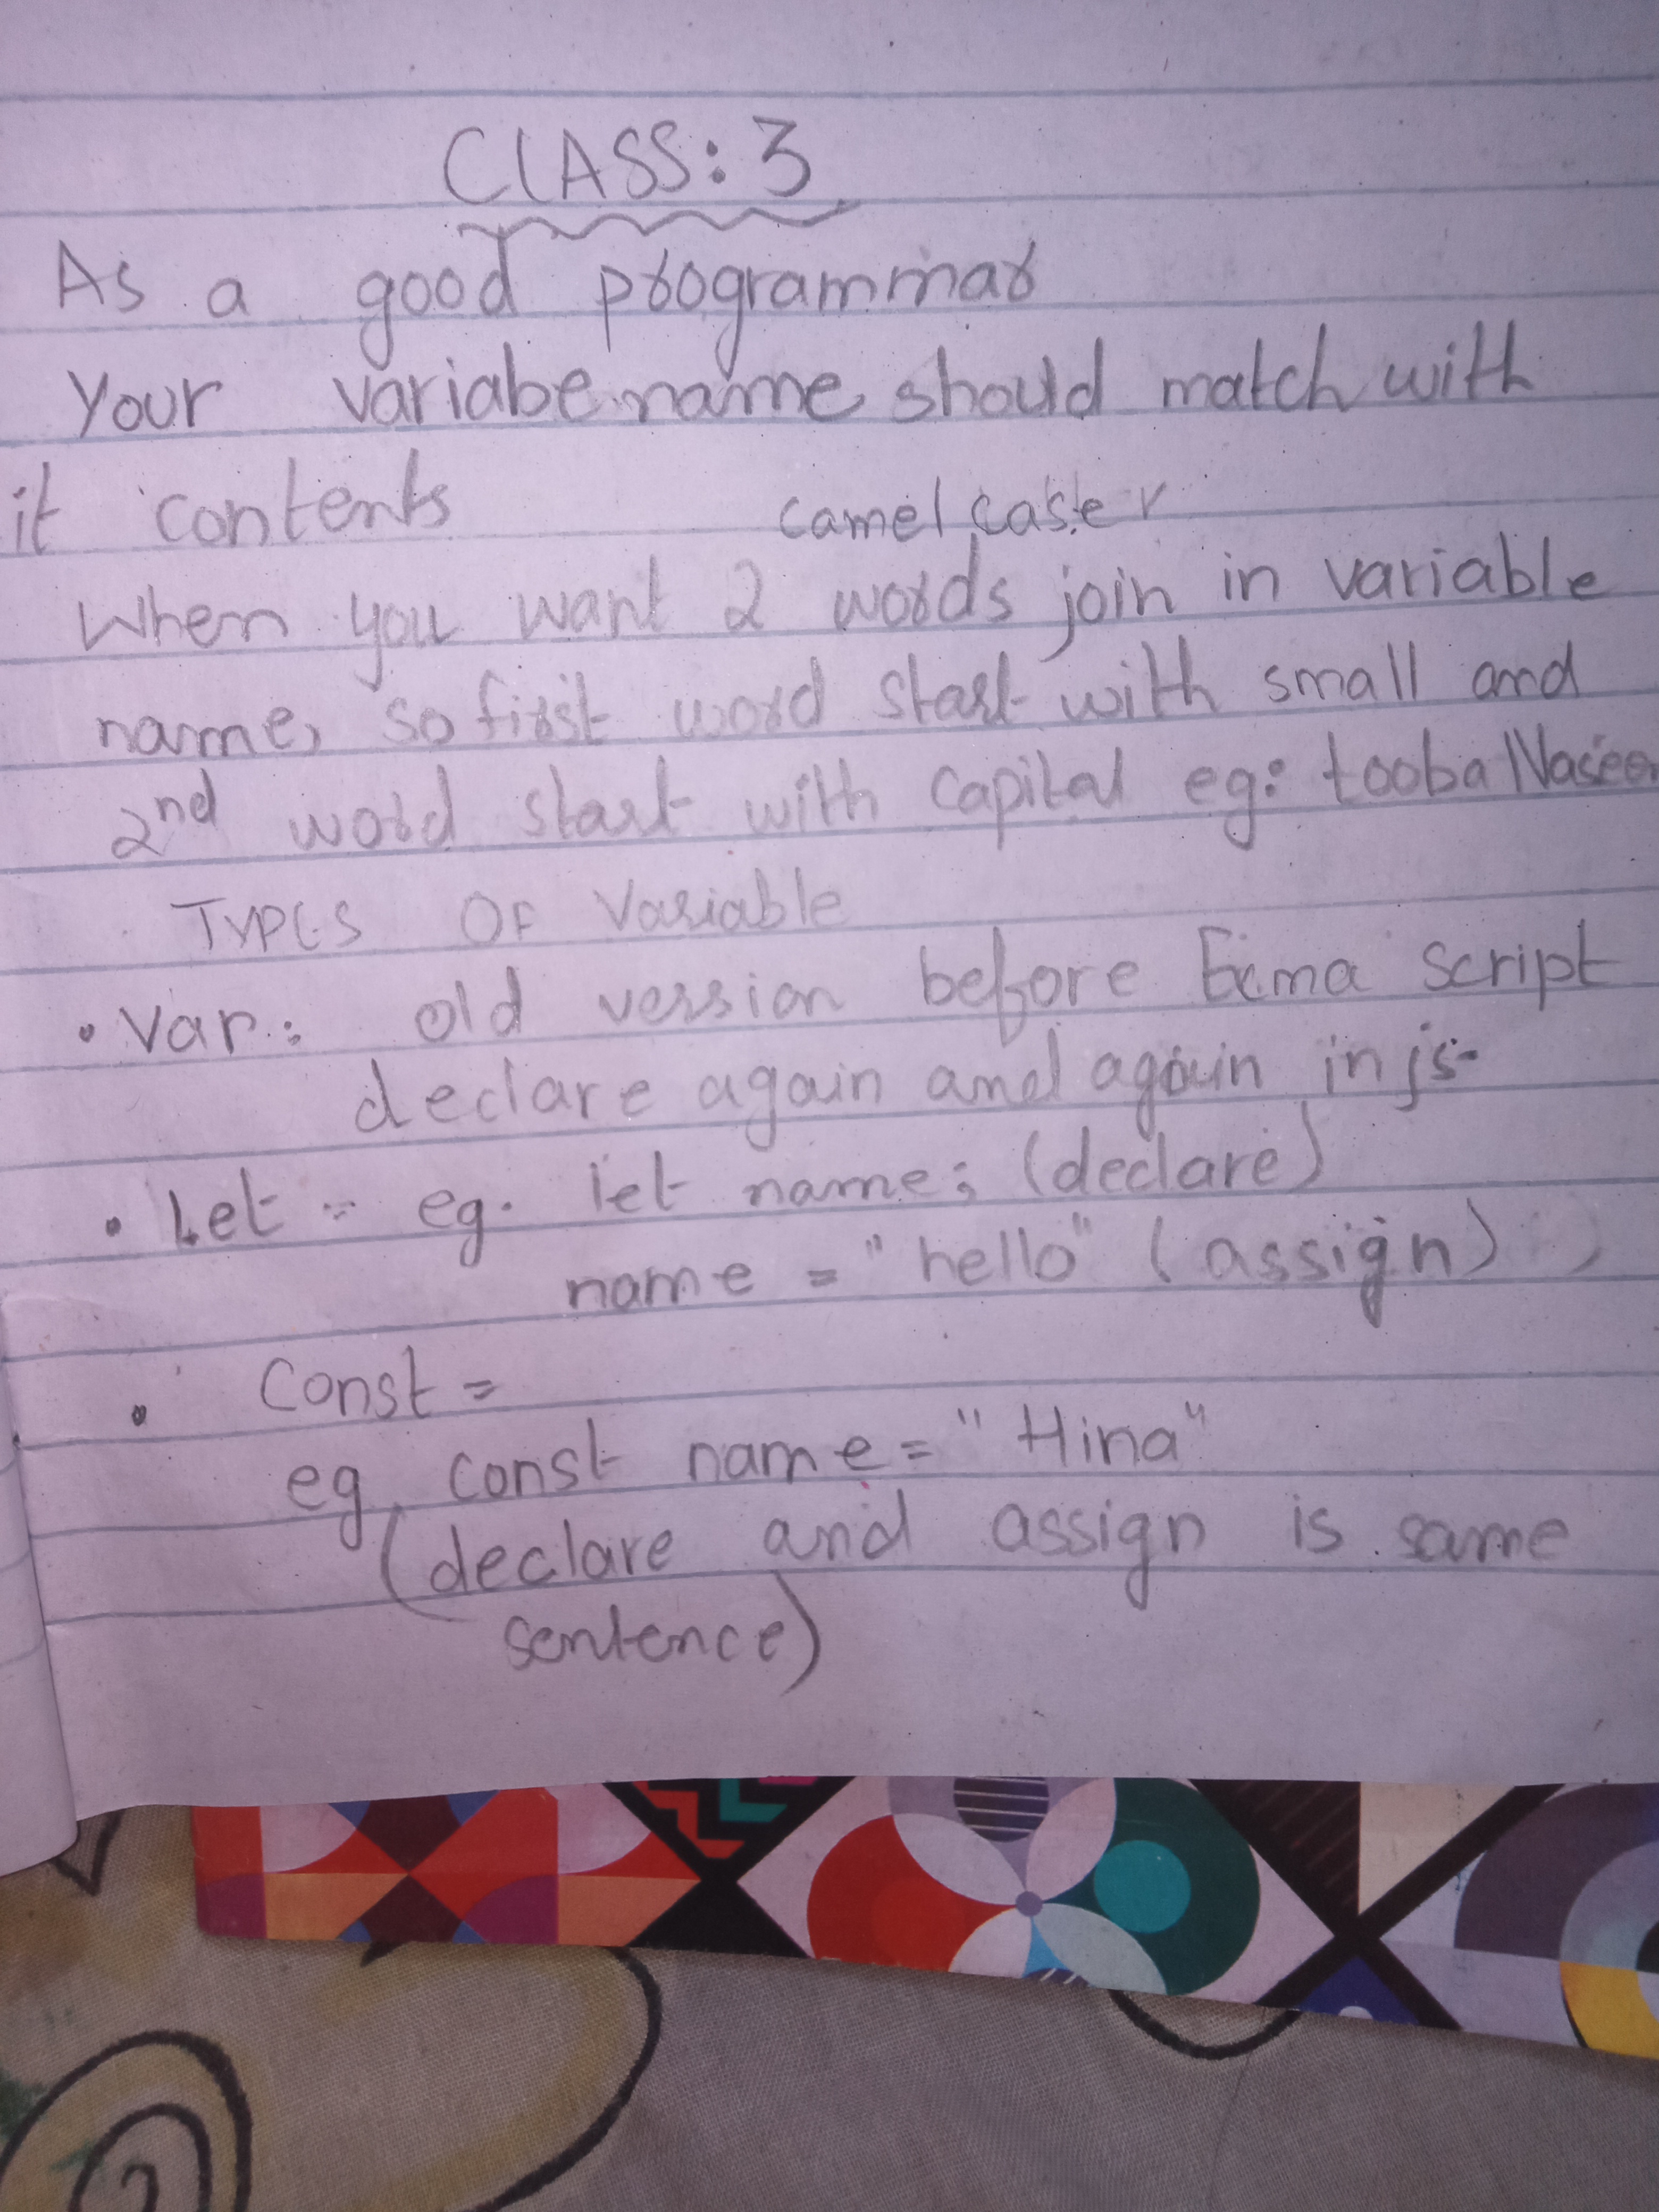 CLASS: 3
As a good programmar
Your variabe name should match with
it contents
camel case
When you want 2 words join in variable
name, so first word start with small and
2nd word start with capital eg: tooba
TYPES OF Variable
• Var: old version before Ecma script
declare again and again in js-
• Let = eg. let name; (declare)
name = "hello" (assign)
• Const =
eg const name = "Hina"
(declare and assign is same
sentence)